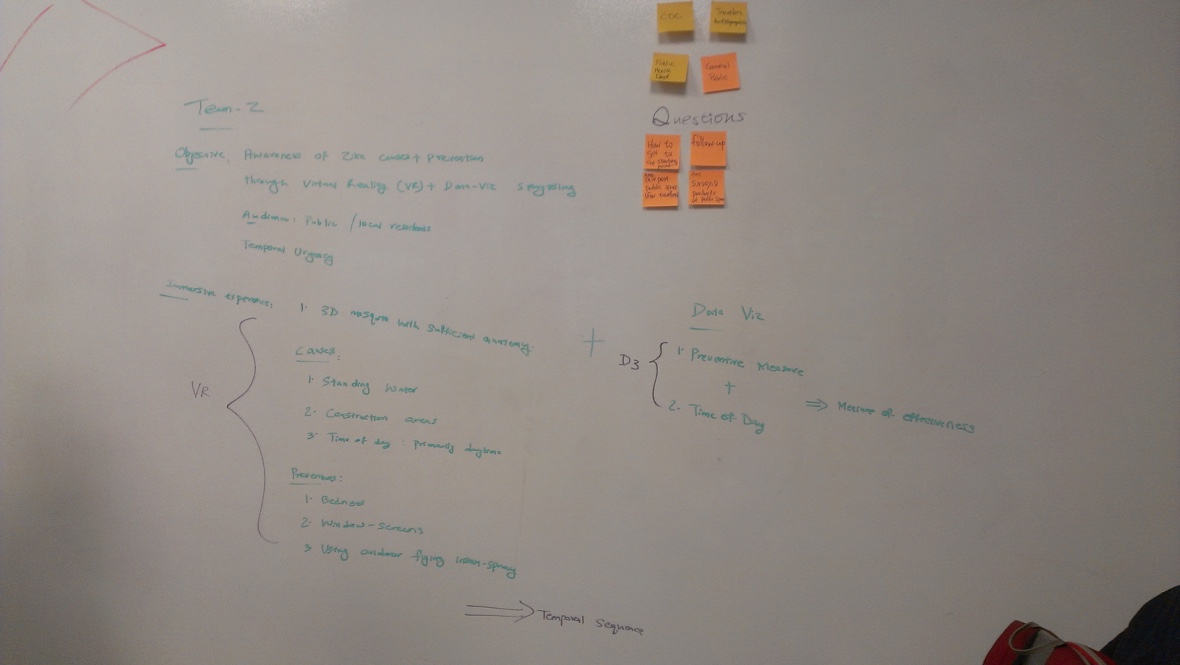 CDC
Travelers
Public
Health
General
Public
Questions
How to
get to
follow-up
airport
public
products
Team-2
Objective: Awareness of Zika causes + Prevention
through Virtual Reality (VR) + Data-Viz storytelling
Audience: Public / local residents
Temporal Urgency
Immersive experience: 1. 3D mosquito with sufficient anatomy.
VR
Causes:
1. Standing Water
2. Construction areas
3. Time of day: primarily daytime
Preventions:
1. Bednet
2. Window-Screens
3. Using outdoor flying insect-spray
⇒ Temporal Sequence
+
Data Viz
D3
1. Preventive Measure
+
2. Time of Day
⇒ Measure of effectiveness